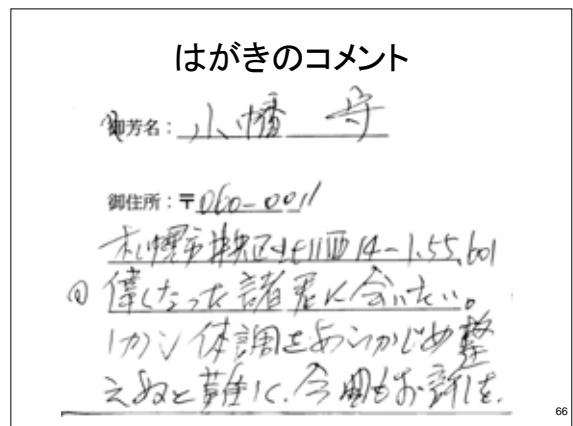 はがきのコメント
御芳名: 小幡 守
御住所: 〒060-0011
札幌市中央区北11西14-1.55.601
偉くなった諸君に会いたい。
しかし体調をあらかじめ整
えぬと難しく、今回もお許しを。
66